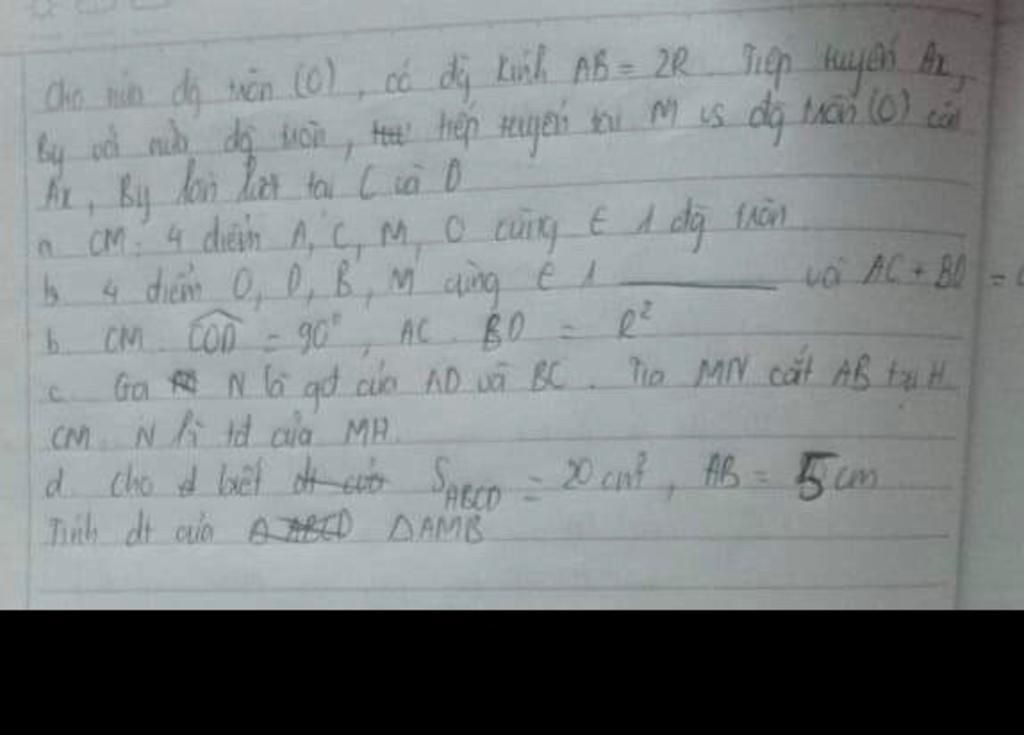 Cho nửa đg tròn (O), có đg kính AB = 2R. Tiếp tuyến Ax,
By với nửa đg tròn, tiếp tuyến tại M vs đg tròn (O) cắt
Ax, By lần lượt tại C và D
a CM: 4 điểm A, C, M, O cùng ∈ 1 đg tròn
b 4 điểm O, D, B, M cùng ∈ 1 _____ và AC + BD =
b. CM. COD = 90°, AC. BD = R²
c. Gọi N là gđ của AD và BC. Tia MN cắt AB tại H
CM. N là tđ của MH.
d. Cho biết S_ABCD = 20 cm², AB = 5 cm
Tính dt của ΔAMB